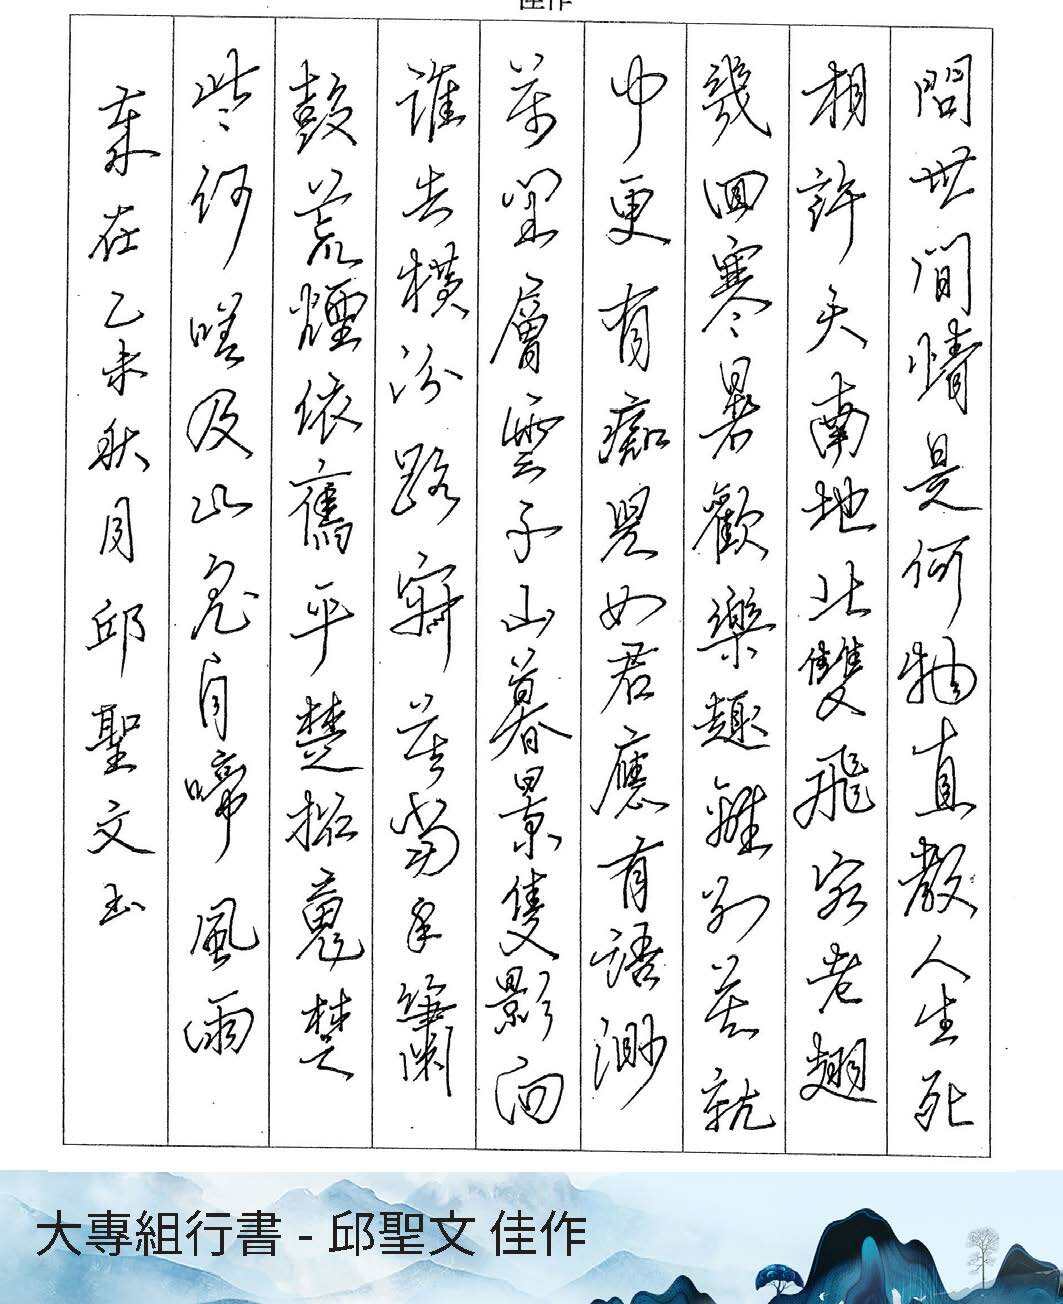 佳作
問世間情是何物直教人生死
相許天南地北雙飛客老翅
幾回寒暑歡樂趣離別苦就
中更有癡兒女君應有語渺
萬里層雲千山暮景隻影向
誰去橫汾路寂寞當年簫
鼓荒煙依舊平楚招魂楚
些何嗟及山鬼自啼風雨
歲在乙未秋月邱聖文書
大專組行書 - 邱聖文 佳作